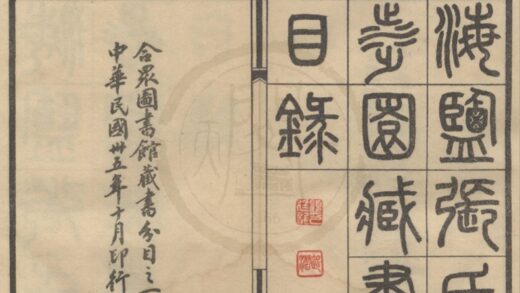 海鹽張氏
涉園藏書
目錄
合眾圖書館藏書分目之一
中華民國卅五年十月印行